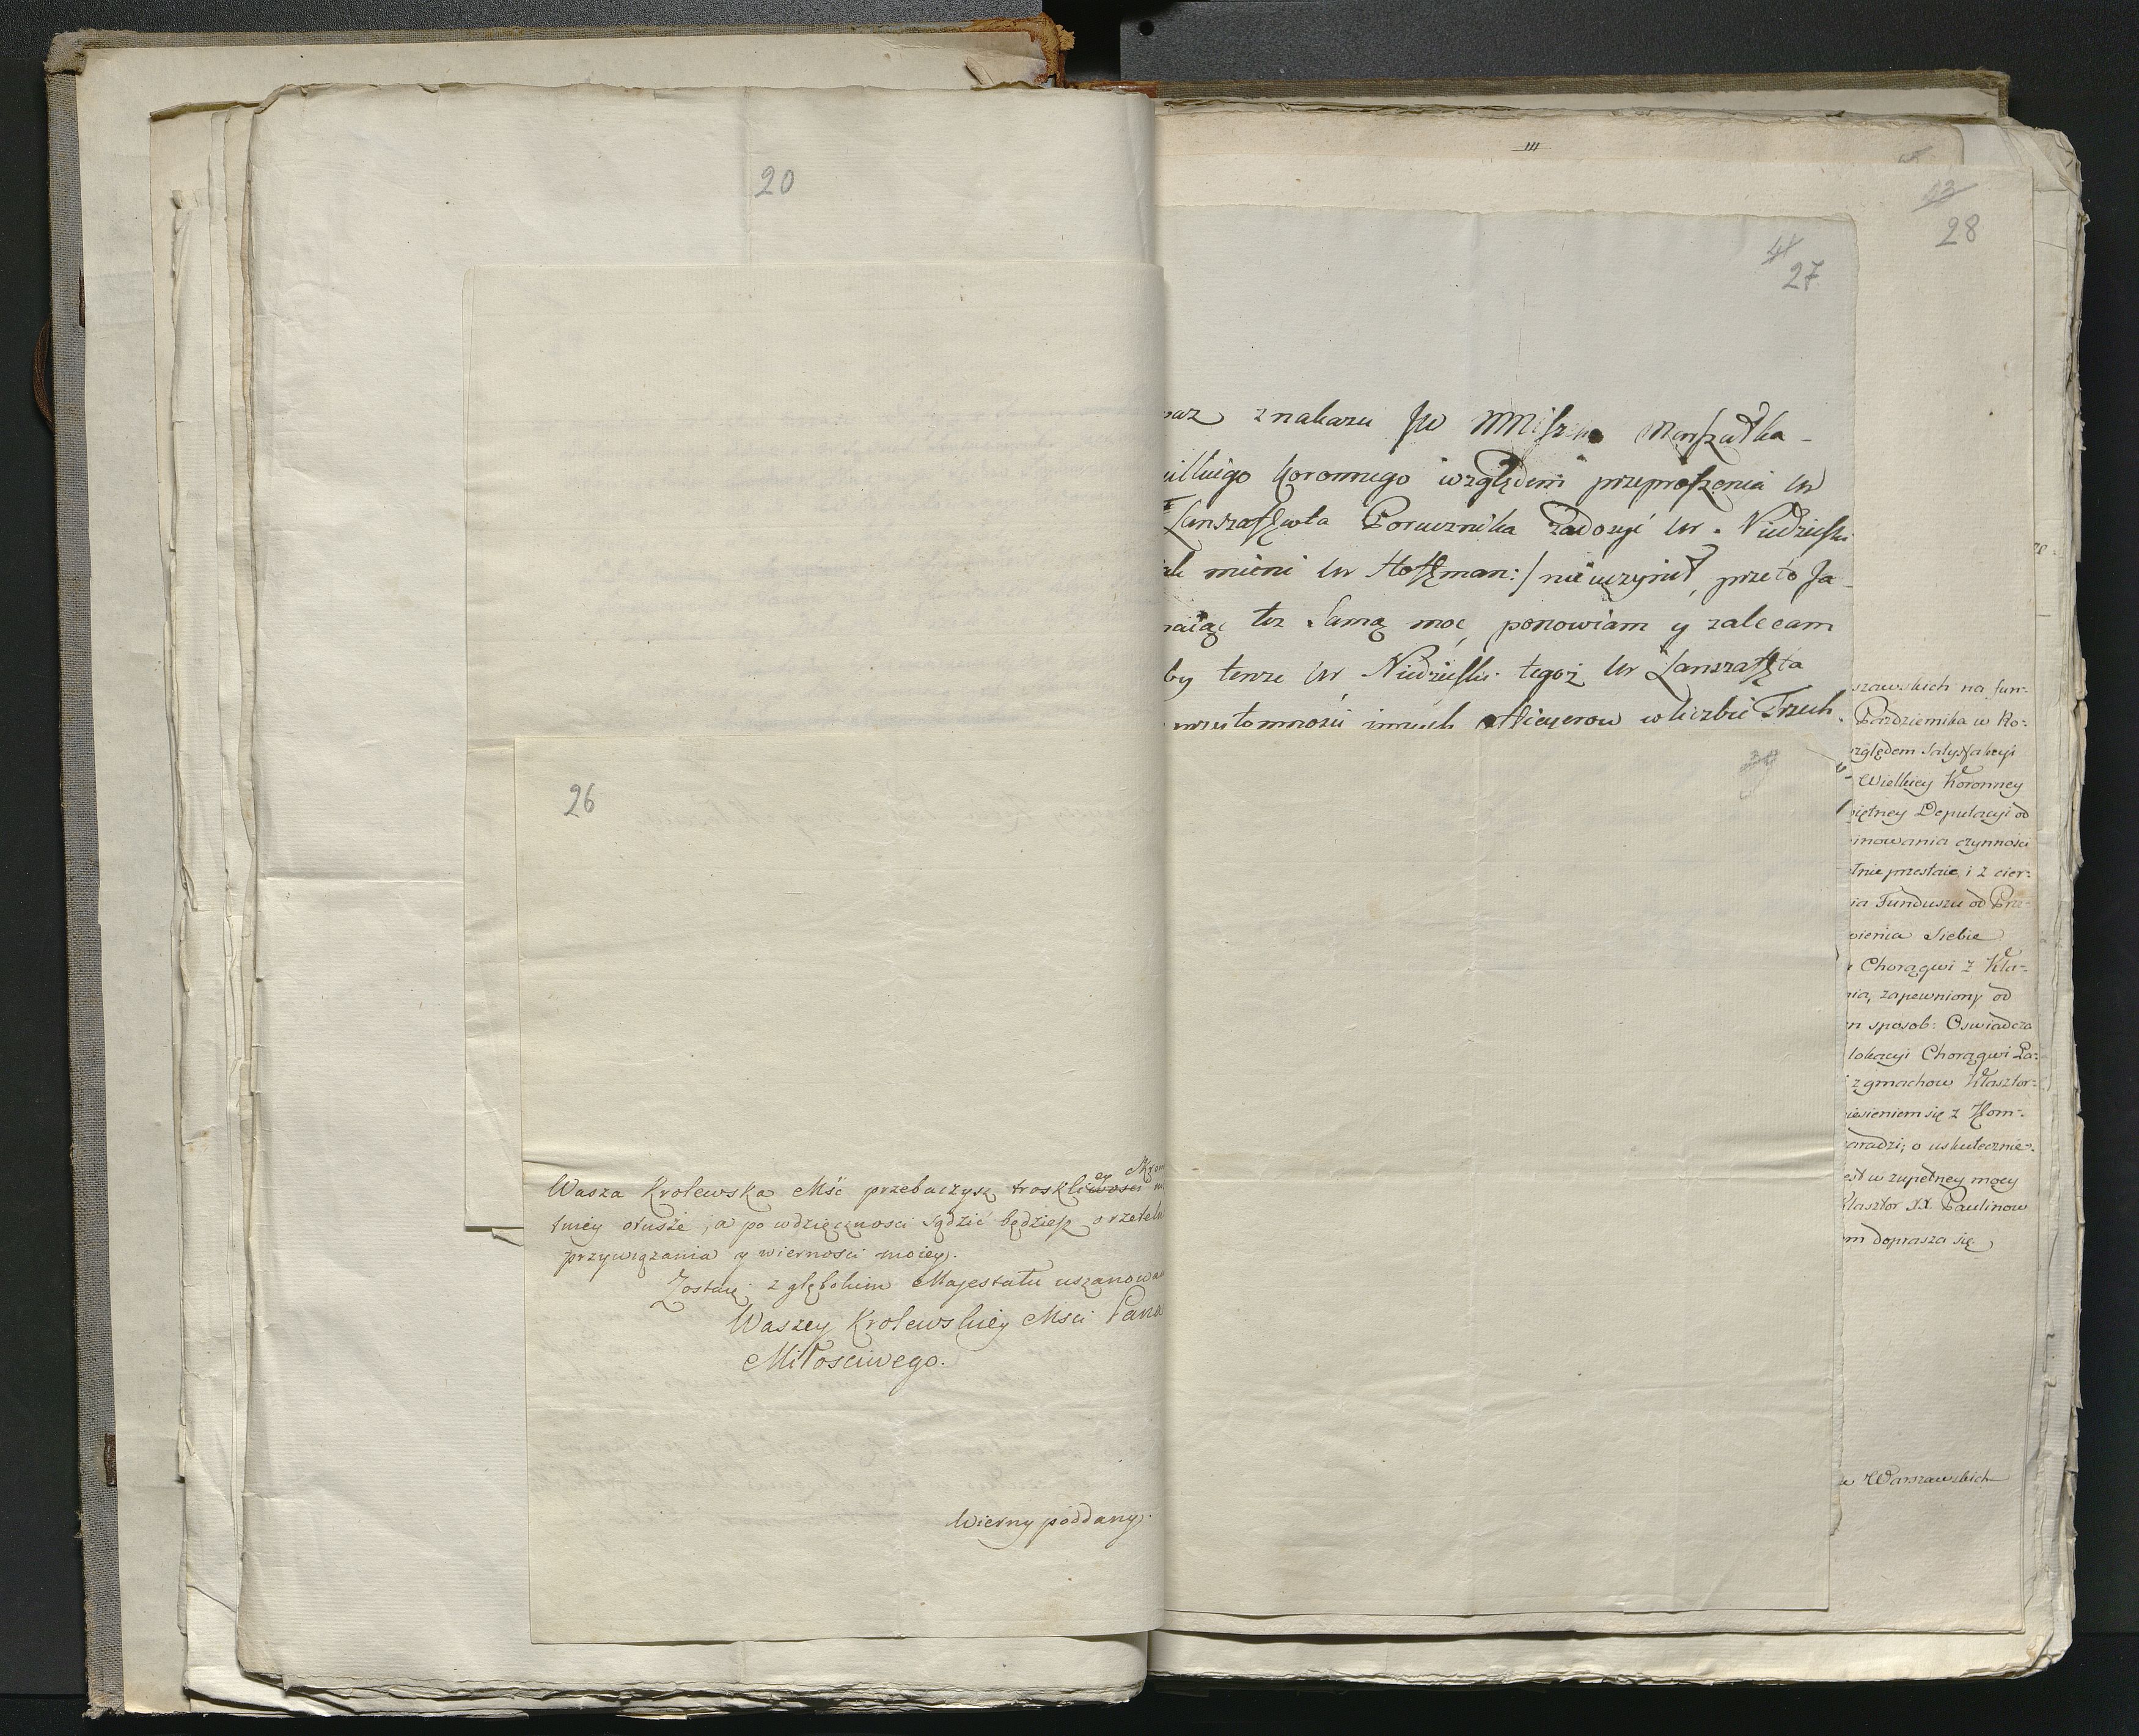 20
26
Skrom
ey
Wasza Krolewska Mść przebaczysz troskliwosci
tney otusze, a po wdzięcznosci sądzić będziesz o rzeteln
przywiązania y wiernosci moiey.
Zostaię z głębokim Majestatu uszanowa
Waszey Krolewskiey Mści Pana
Miłosciwego.
Wierny poddany.
III
43
28
41
27
raz z nakazu JW Mniszcha Marszałka
wielkiego Koronnego względem przeproszenia Ur
Lanszaffta Porucznika zadosyć Ur. Niedzielski
mieni Ur Hoffman:/ nie uczynił, przeto Ja
maiąc też samą moc, ponowiam y zalecam
by tenze Ur Niedzielski tegoż Ur Lanszaffta
przytomnosci innych officyerow w liczbie Trzech
szawskich na fun-
Pazdziernika w Ko:
zględem satysfakcyi
Wielkiey Koronney
piętney Deputacyi od
mowania czynnosci
łnie przestaie, i z cier:
ia Funduszu od Prze-
wienia siebie
Chorągwi z Kla-
nia, zapewniony od
n sposob: Oswiadcza
lokacyi Chorągwi Pa-
z gmachow Klasztor-
iesieniem się z Kom-
aradzi; o uskutecznie-
est w zupełney mocy
Klasztor XX Paulinow
em doprasza się
w Warszawskich